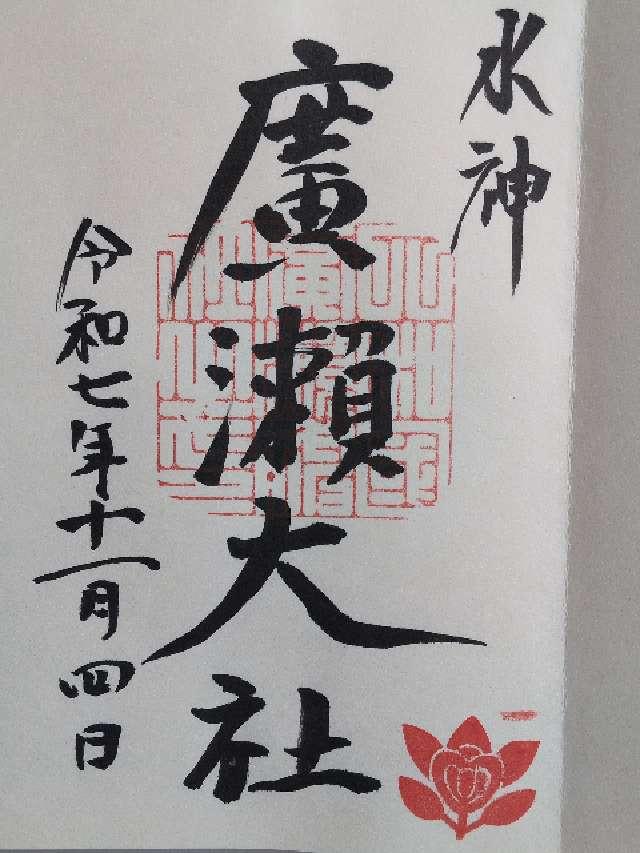 水神
廣瀬大社
令和七年十一月四日